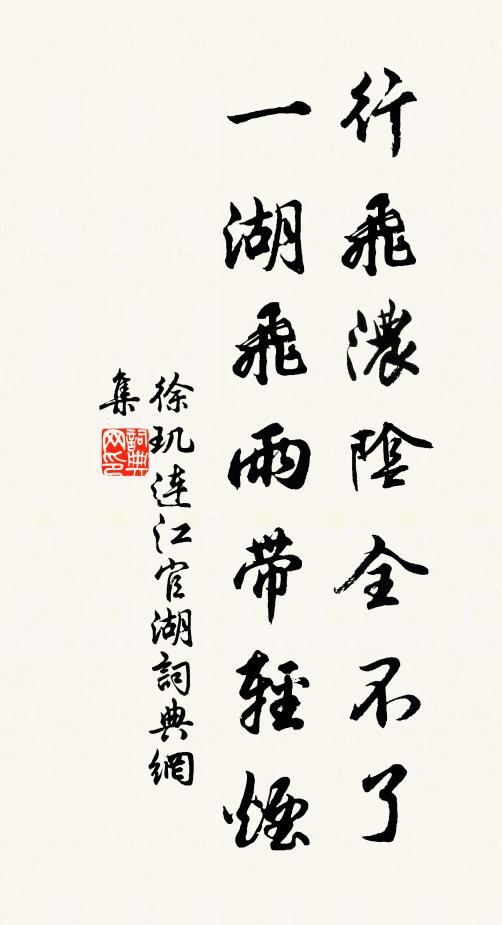 行飛濃陰全不了
一湖飛雨帶輕煙
徐玑連江官湖詞典網
集
詞典
网印